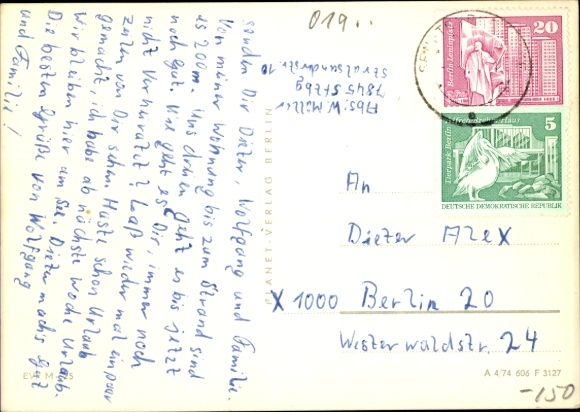 019..
Abs: W. Müller
7845 Sfbg
Stralsunderstr. 10
senden Dir Dieter, Wolfgang und Familie.
Von meiner Wohnung bis zum Strand sind
es 200m. Uns dreien geht es bis jetzt
noch gut. Wie geht es Dir, immer noch
nicht Verheiratet? Laß wieder mal ein paar
zeilen von Dir sehen. Haste schon Urlaub
gemacht, ich habe ab nächste Woche Urlaub.
Wir bleiben hier am See. Dieter machs gut
Die besten Grüße von Wolfgang
und Familie!
PLANET-VERLAG BERLIN
20
Berlin-Leninplatz
DDR
5
Tierpark Berlin
Alfred-Brehm-Haus
DEUTSCHE DEMOKRATISCHE REPUBLIK
An
Dieter Alex
X 1000 Berlin 20
Westerwaldstr. 24
A 4/74 606 F 3127
-150